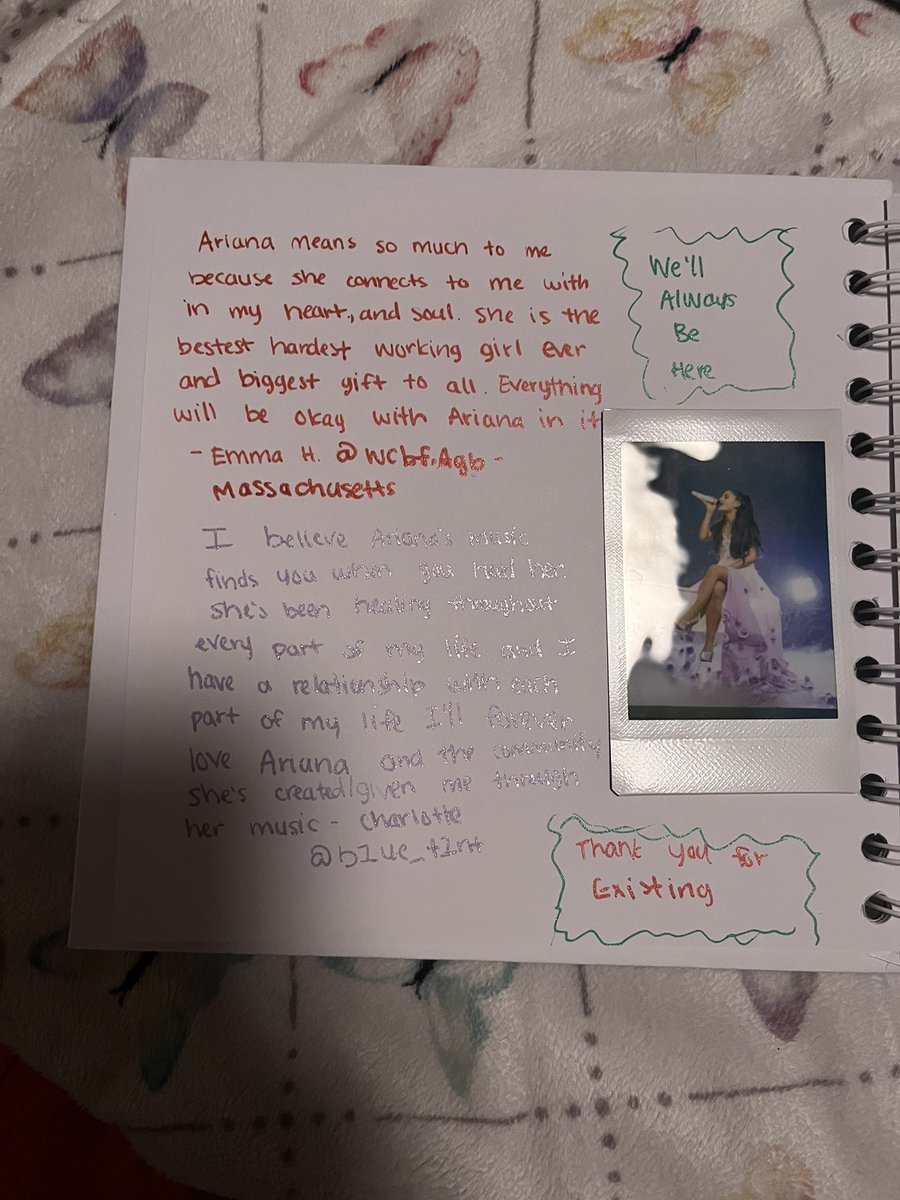 Ariana means so much to me
because she connects to me with
in my heart, and soul. she is the
bestest hardest working girl ever
and biggest gift to all. Everything
will be okay with Ariana in it
- Emma H. @wcbf.Agb -
Massachusetts
I believe Ariana's music
finds you when you need her.
she's been healing throughout
every part of my life and I
have a relationship with each
part of my life I'll forever
love Ariana and the community
she's created/given me through
her music - Charlotte
We'll
Always
Be
Here
Thank you for
Existing